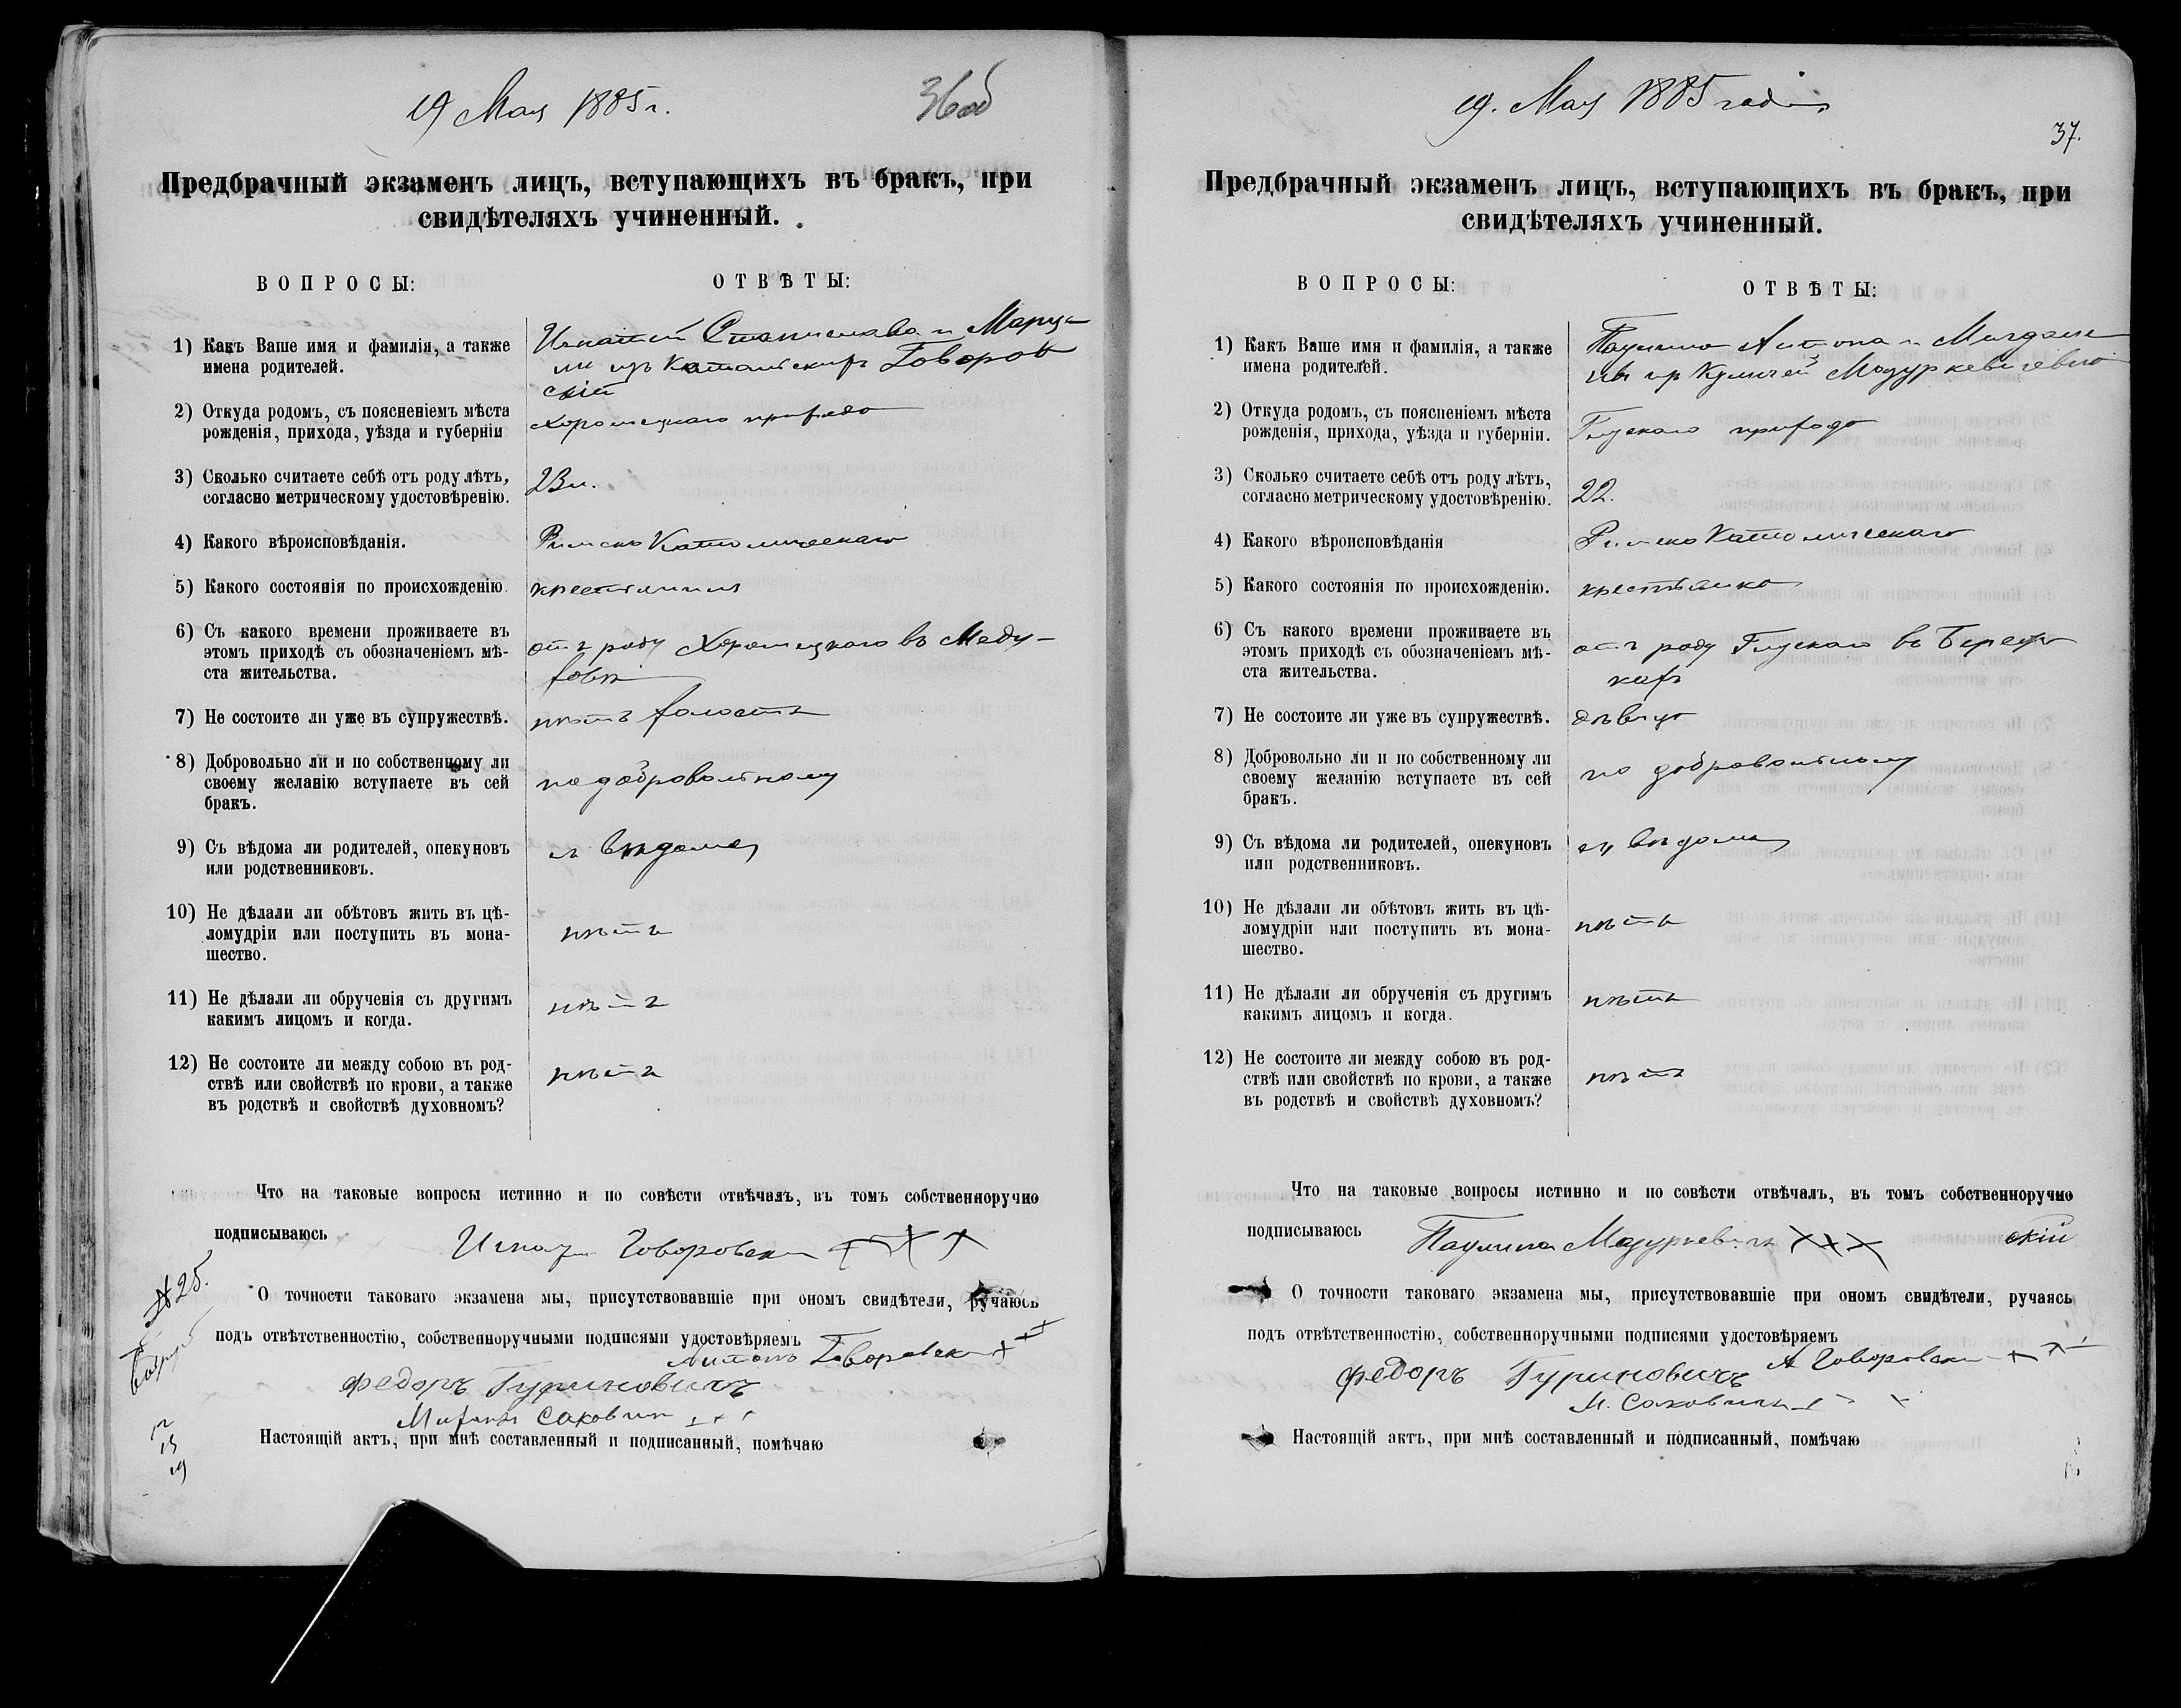 19 Мая 1885 г.
36об
Предбрачный экзаменъ лицъ, вступающихъ въ бракъ, при
свидѣтеляхъ учиненный.
ВОПРОСЫ:
ОТВѢТЫ:
1) Какъ Ваше имя и фамилія, а также
имена родителей.
Игнатій Станислава и Марця-
ли изъ Говоров
скій
2) Откуда родомъ, съ поясненіемъ мѣста
рожденія, прихода, уѣзда и губерніи
прихода
3) Сколько считаете себѣ отъ роду лѣтъ,
согласно метрическому удостовѣренію.
23 л.
4) Какого вѣроисповѣданія.
Римско Католическаго
5) Какого состоянія по происхожденію.
крестьянинъ
6) Съ какого времени проживаете въ
этомъ приходѣ съ обозначеніемъ мѣ-
ста жительства.
отъ роду въ
7) Не состоите ли уже въ супружествѣ.
нѣтъ холостъ
8) Добровольно ли и по собственному ли
своему желанію вступаете въ сей
бракъ.
по добровольному
9) Съ вѣдома ли родителей, опекуновъ
или родственниковъ.
съ вѣдома
10) Не дѣлали ли обѣтовъ жить въ цѣ-
ломудріи или поступить въ мона-
шество.
нѣтъ
11) Не дѣлали ли обрученія съ другимъ
какимъ лицомъ и когда.
нѣтъ
12) Не состоите ли между собою въ род-
ствѣ или свойствѣ по крови, а также
въ родствѣ и свойствѣ духовномъ?
нѣтъ
Что на таковые вопросы истинно и по совѣсти отвѣчалъ, въ томъ собственноручно
подписываюсь
Говоровски + + +
№ 25.
О точности таковаго экзамена мы, присутствовавшіе при ономъ свидѣтели, ручаюсь
подъ отвѣтственностію, собственноручными подписями удостовѣряемъ
Антонъ Говоровски + + +
Федоръ Гуриновичъ
Саковичъ + + +
Настоящій актъ, при мнѣ составленный и подписанный, помѣчаю
12
19
19. Мая 1885 года
37.
Предбрачный экзаменъ лицъ, вступающихъ въ бракъ, при
свидѣтеляхъ учиненный.
ВОПРОСЫ:
ОТВѢТЫ:
1) Какъ Ваше имя и фамилія, а также
имена родителей.
Паулина Антона и Магдале
ны Мазуркевичевна
2) Откуда родомъ, съ поясненіемъ мѣста
рожденія, прихода, уѣзда и губерніи.
Глускаго прихода
3) Сколько считаете себѣ отъ роду лѣтъ,
согласно метрическому удостовѣренію.
22.
4) Какого вѣроисповѣданія
Римско Католическаго
5) Какого состоянія по происхожденію.
крестьянка
6) Съ какого времени проживаете въ
этомъ приходѣ съ обозначеніемъ мѣ-
ста жительства.
отъ роду Глускаго въ
7) Не состоите ли уже въ супружествѣ.
дѣвица
8) Добровольно ли и по собственному ли
своему желанію вступаете въ сей
бракъ.
по добровольному
9) Съ вѣдома ли родителей, опекуновъ
или родственниковъ.
съ вѣдома
10) Не дѣлали ли обѣтовъ жить въ цѣ-
ломудріи или поступить въ мона-
шество.
нѣтъ
11) Не дѣлали ли обрученія съ другимъ
какимъ лицомъ и когда.
нѣтъ
12) Не состоите ли между собою въ род-
ствѣ или свойствѣ по крови, а также
въ родствѣ и свойствѣ духовномъ?
нѣтъ
Что на таковые вопросы истинно и по совѣсти отвѣчалъ, въ томъ собственноручно
подписываюсь
Паулина Мазуркевичъ × × ×
скій
О точности таковаго экзамена мы, присутствовавшіе при ономъ свидѣтели, ручаясь
подъ отвѣтственностію, собственноручными подписями удостовѣряемъ
А Говоровски + + +
Федоръ Гуриновичъ
М. Саковичъ
Настоящій актъ, при мнѣ составленный и подписанный, помѣчаю